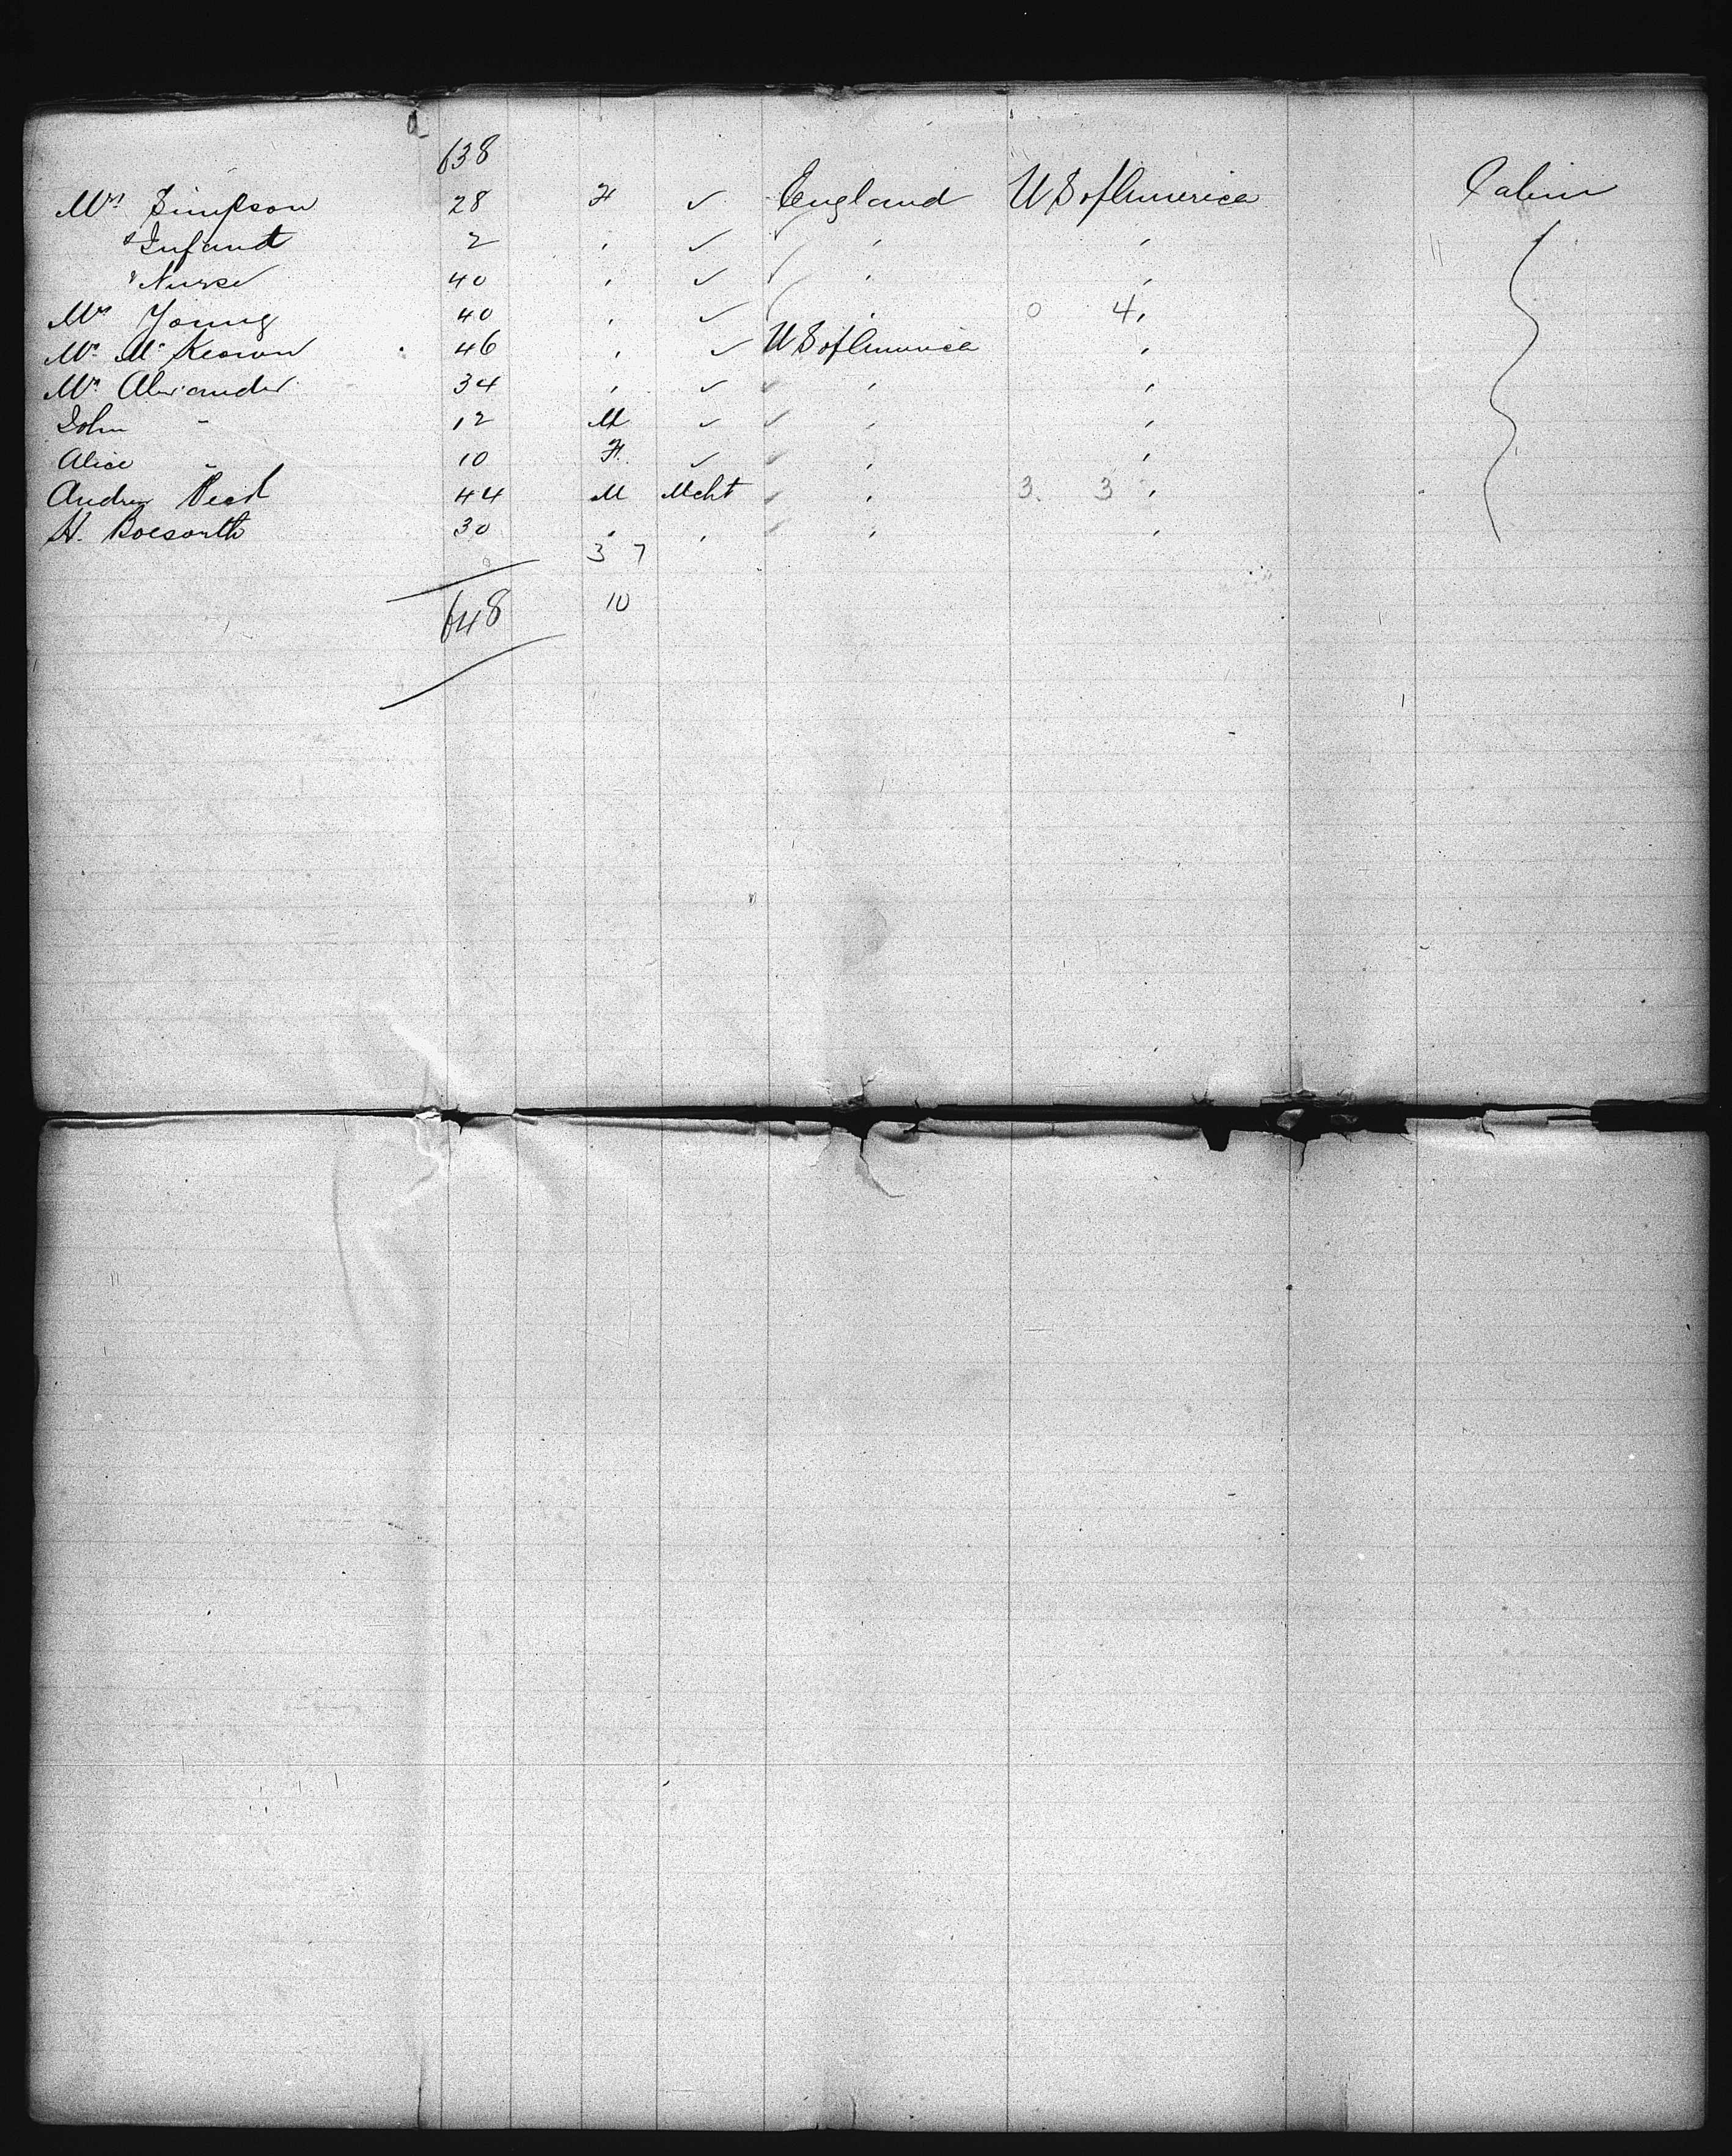 638
Mrs Simpson 28 F ✓ England U S of America Cabin
" Infant 2 " ✓ " "
" Nurse 40 " ✓ " "
Mrs Young 40 " ✓ " 0 4 "
Mrs McKeown 46 " ✓ U S of America "
Mrs Alexander 34 " ✓ " "
John " 12 M ✓ " "
Alice " 10 F. ✓ " "
Andrew 44 M Mcht " 3. 3 "
H. Bosworth 30 " " " "
3 7
648 10